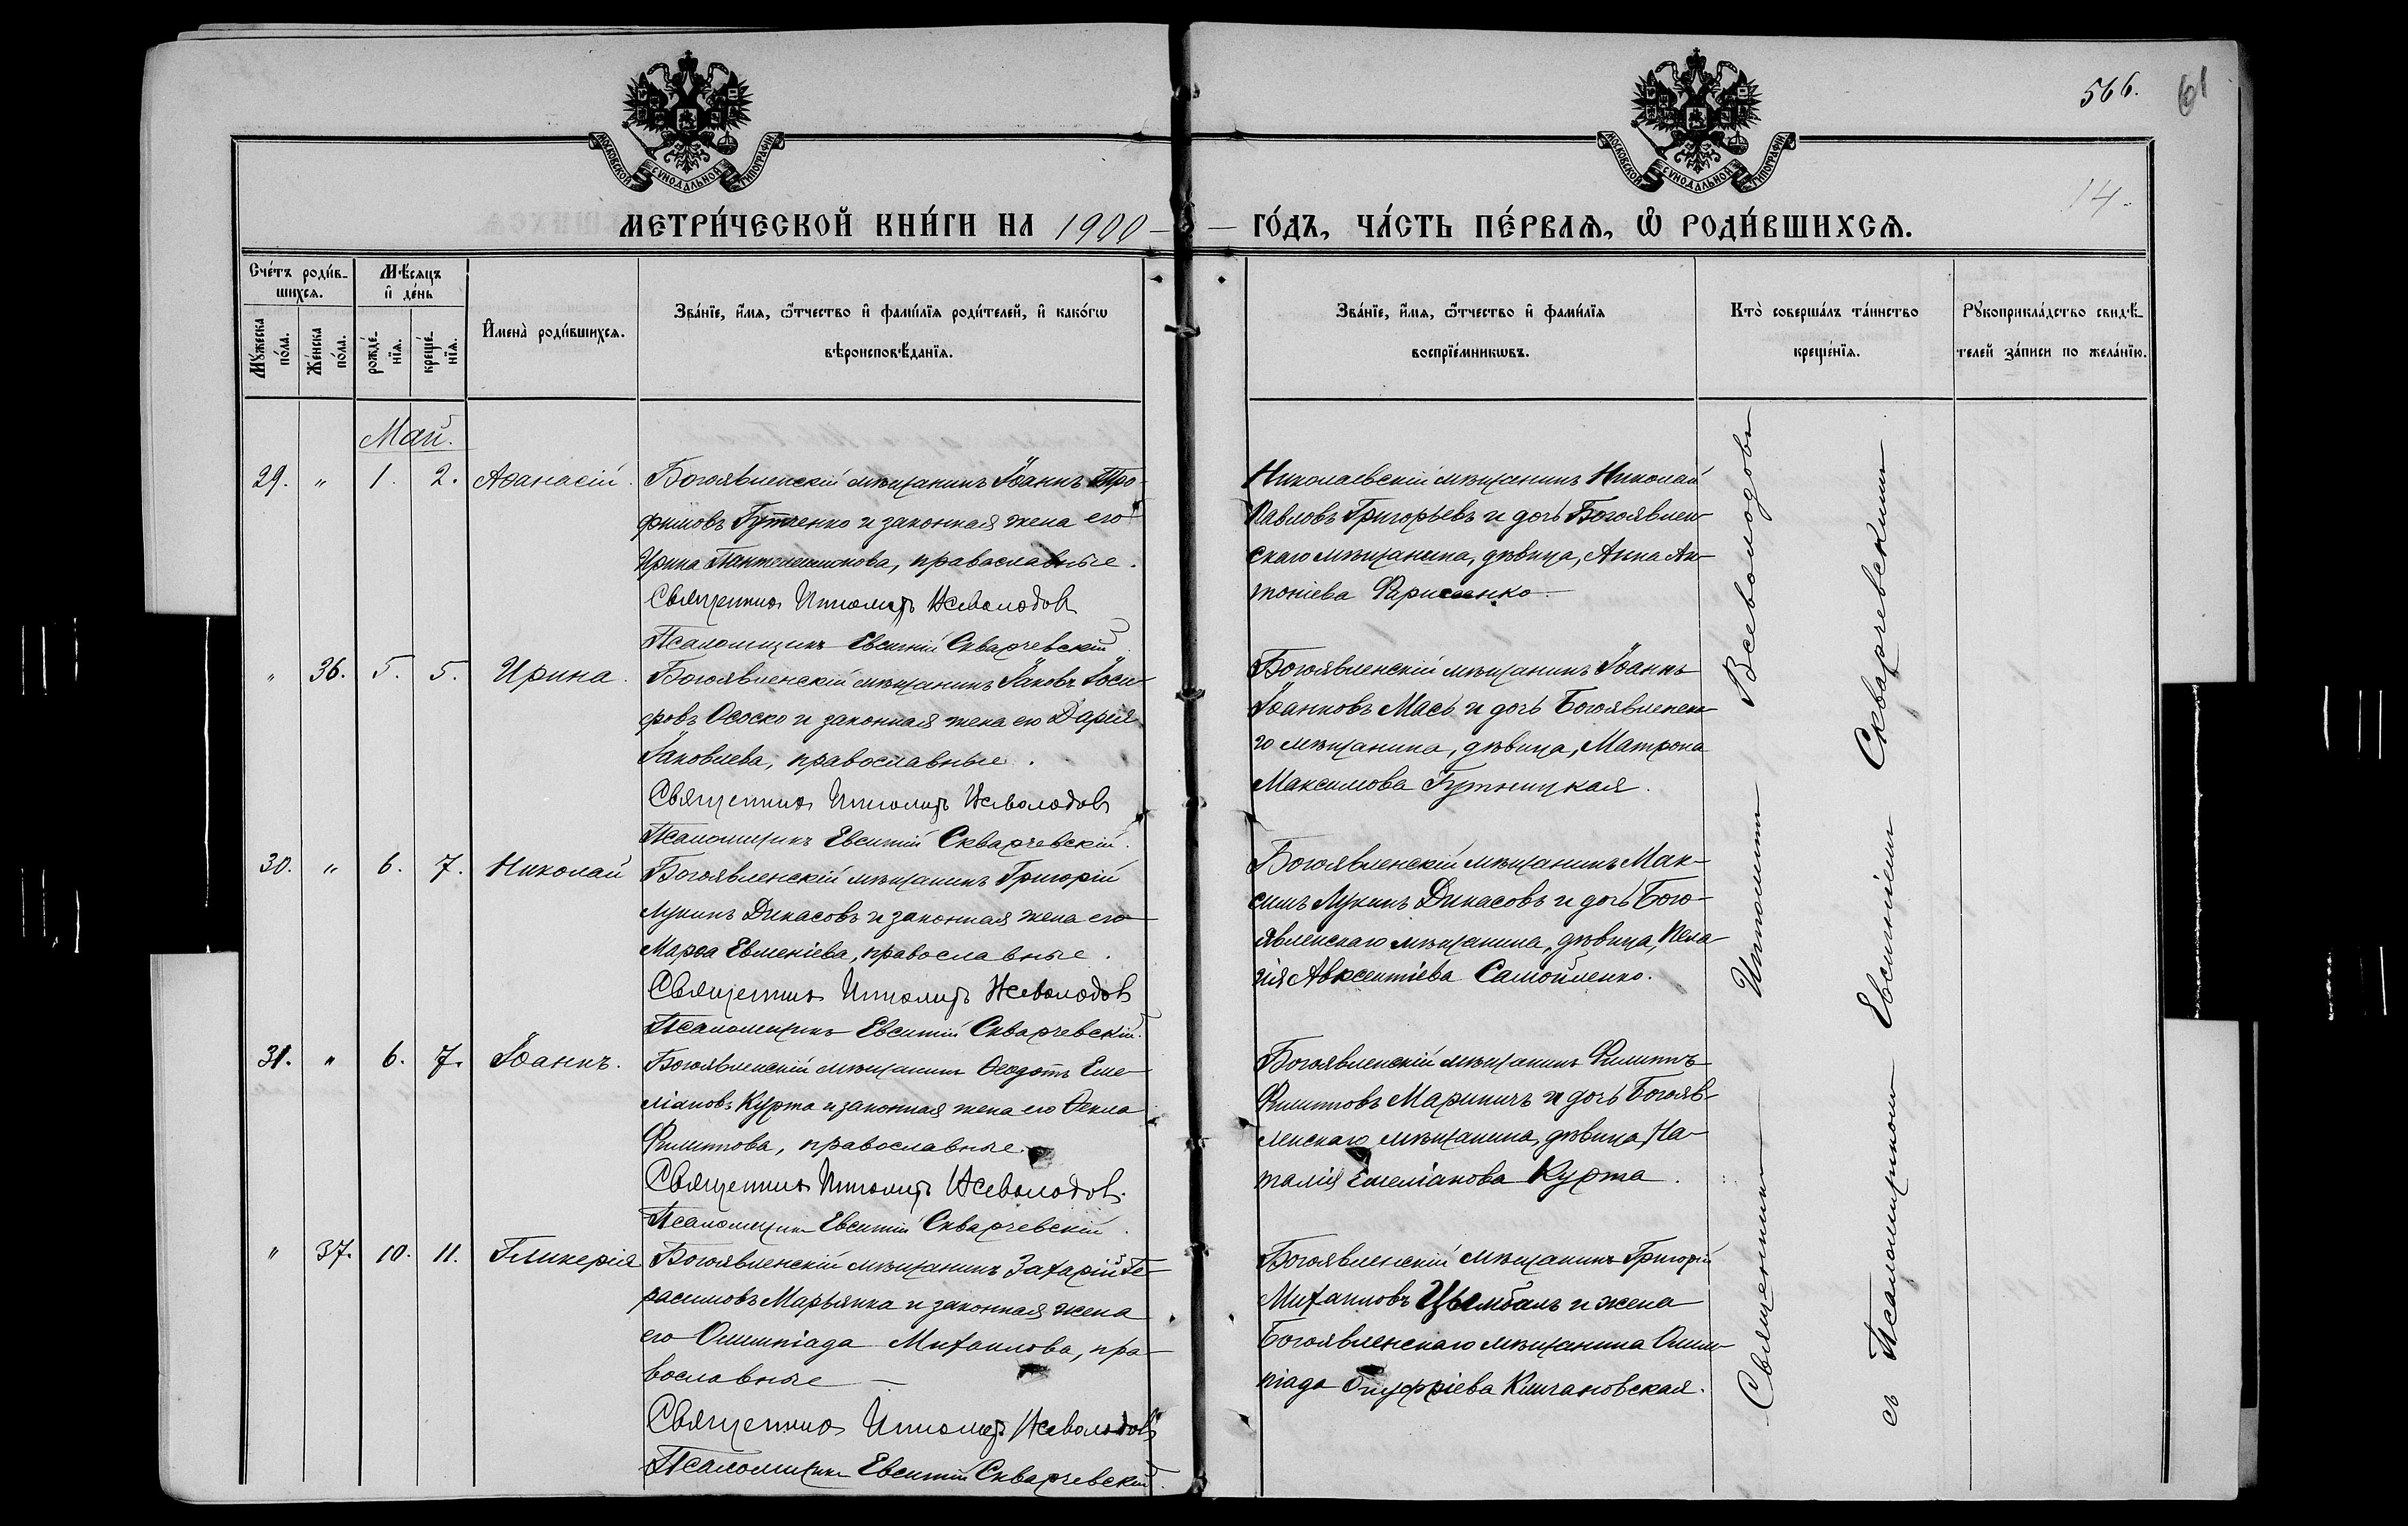 566.
61
14.
МОСКОВСКОЙ СѴНОДАЛЬНОЙ ТИПОГРАФІИ
МОСКОВСКОЙ СѴНОДАЛЬНОЙ ТИПОГРАФІИ
МЕТРИ́ЧЕСКОЙ КНИ́ГИ НА 1900 — ГО́ДЪ, ЧА́СТЬ ПЕ́РВАѦ, Ѡ҆ РОДИ́ВШИХСѦ.
Сче́тъ роди́в-
шихсѧ.
Мꙋ́жеска по́ла.
Же́нска по́ла.
Мѣ́сѧцъ
и҆ де́нь
рожде́-
нїѧ.
креще́-
нїѧ.
И҆мена̀ роди́вшихсѧ.
Зва́нїе, и҆́мѧ, ѻ҆́тчество и҆ фами́лїѧ роди́телей, и҆ како́гѡ
вѣроисповѣ́данїѧ.
Зва́нїе, и҆́мѧ, ѻ҆́тчество и҆ фами́лїѧ
воспрїе́мникѡвъ.
Кто̀ соверша́лъ та́инство
креще́нїѧ.
Рꙋкоприкла́дство свидѣ́-
телей за́писи по жела́нїю.
Май.
29. " 1. 2. Аѳанасій.
Богоявленскій мѣщанинъ Іоаннъ Тро-
фимовъ Гутченко и законная жена его
Ирина Пантелеимонова, православные.
Священникъ Ипполитъ Всеволодовъ
Псаломщикъ Евсигній Скварчевскій
Николаевскій мѣщанинъ Николай
Павловъ Григорьевъ и дочь Богоявлен-
скаго мѣщанина, дѣвица, Анна Ан-
тоніева
" 36. 5. 5. Ирина.
Богоявленскій мѣщанинъ Іаковъ Іоси-
фовъ Ососко и законная жена его Дарія
Іаковлева, православные.
Священникъ Ипполитъ Всеволодовъ
Псаломщикъ Евсигній Скварчевскій.
Богоявленскій мѣщанинъ Іоаннъ
Іоанновъ Мась и дочь Богоявленска-
го мѣщанина, дѣвица, Матрона
Максимова Гутницкая.
30. " 6. 7. Николай
Богоявленскій мѣщанинъ Григорій
Лукинъ Дикасовъ и законная жена его
Марѳа Евменіева, православные.
Священникъ Ипполитъ Всеволодовъ
Псаломщикъ Евсигній Скварчевскій.
Богоявленскій мѣщанинъ Мак-
симъ Лукинъ Дикасовъ и дочь Бого-
явленскаго мѣщанина, дѣвица, Пела-
гія Авксентіева Самойленко.
31. " 6. 7. Іоаннъ.
Богоявленскій мѣщанинъ Ѳеодотъ Еме-
ліановъ Курта и законная жена его Ѳекла
Филиппова, православные.
Священникъ Ипполитъ Всеволодовъ.
Псаломщикъ Евсигній Скварчевскій.
Богоявленскій мѣщанинъ Филиппъ
Филипповъ Мариничъ и дочь Богояв-
ленскаго мѣщанина, дѣвица, На-
талія Емеліанова Курта.
" 37. 10. 11. Гликерія
Богоявленскій мѣщанинъ Захарій Ге-
расимовъ Марьянка и законная жена
его Олимпіада Михаилова, пра-
вославные —
Священникъ Ипполитъ Всеволодовъ
Псаломщикъ Евсигній Скварчевскій.
Богоявленскій мѣщанинъ Григорій
Михаиловъ Цымбалъ и жена
Богоявленскаго мѣщанина Олим-
піада Онуфріева Климановская.
Священникъ Ипполитъ Всеволодовъ
съ Псаломщикомъ Евсигніемъ Скварчевскимъ.